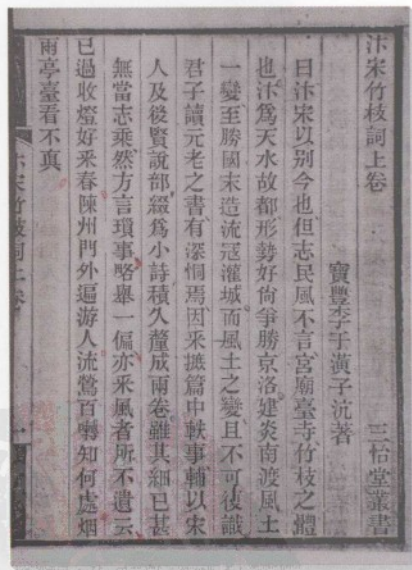 汴宋竹枝詞上卷
三怡堂叢書
寶豐李于潢子沆著
曰汴宋以别今也但志民風不言宮廟臺寺竹枝之體
也汴爲天水故都形勢好尙爭勝京洛建炎南渡風土
一變至勝國末造流冦灌城而風土之變且不可復識
君子讀元老之書有深恫焉因釆摭篇中軼事輔以宋
人及後賢說部綴爲小詩積久釐成兩卷雖其細已甚
無當志乘然方言瑣事略舉一偏亦釆風者所不遺云
已過收燈好釆春陳州門外遍游人流鶯百囀知何處烟
雨亭臺看不真
汴宋竹枝詞上卷
一